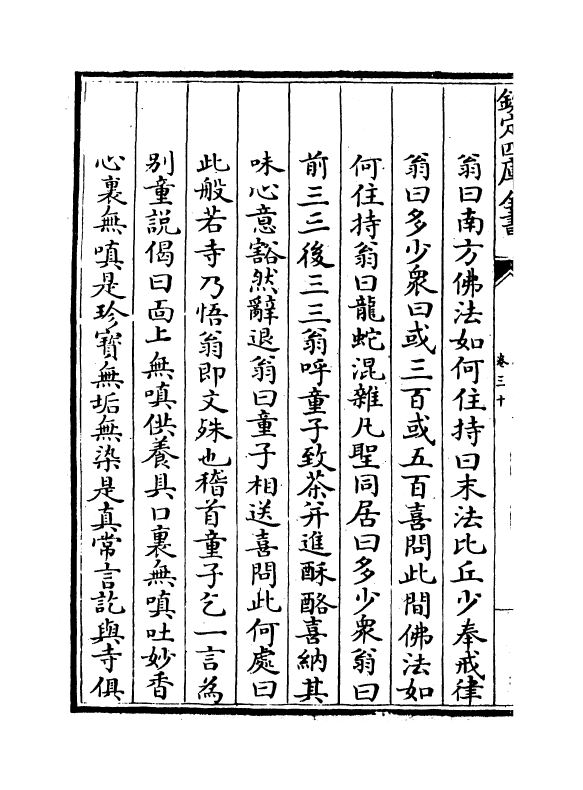 欽定四庫全書
卷三十
翁曰南方佛法如何住持曰末法比丘少奉戒律
翁曰多少衆曰或三百或五百喜問此間佛法如
何住持翁曰龍蛇混雜凡聖同居曰多少衆翁曰
前三三後三三翁呼童子致茶并進酥酪喜納其
味心意豁然辭退翁曰童子相送喜問此何處曰
此般若寺乃悟翁即文殊也稽首童子乞一言為
别童説偈曰面上無嗔供養具口裏無嗔吐妙香
心裏無嗔是珍寳無垢無染是真常言訖與寺俱